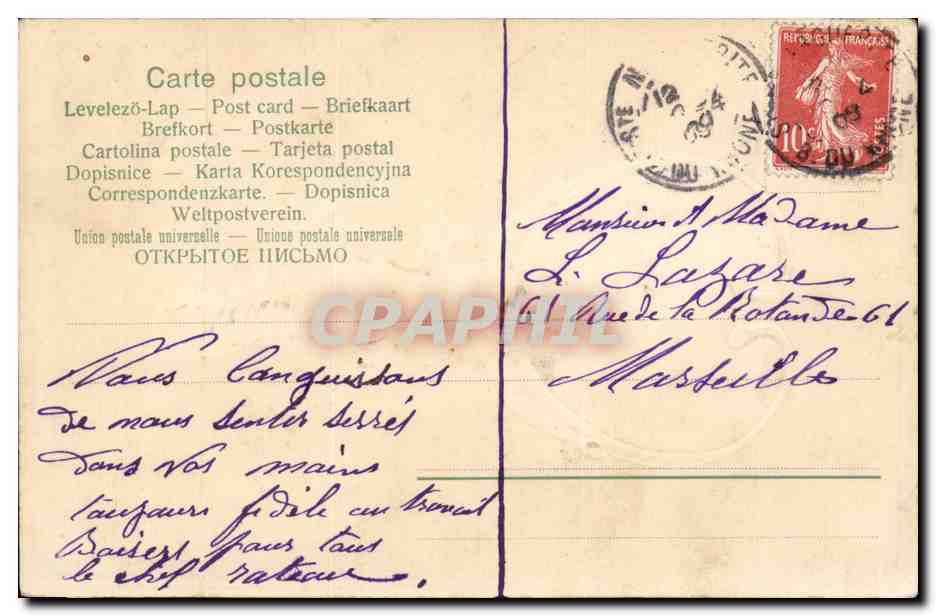 Carte postale
Levelező-Lap — Post card — Briefkaart
Brefkort — Postkarte
Cartolina postale — Tarjeta postal
Dopisnice — Karta Korespondencyjna
Correspondenzkarte. — Dopisnica
Weltpostverein.
Union postale universelle — Unione postale universale
ОТКРЫТОЕ ПИСЬМО
REPUBLIQUE FRANÇAISE
10c
POSTES
Monsieur et Madame
L. Lazare
61 Rue de la Rotande 61
Marseille
CPAPHIL
Nous languissons
de nous sentir serrés
dans vos mains
toujours fidèle au travail
Baisers pour tous
le chef rateau.